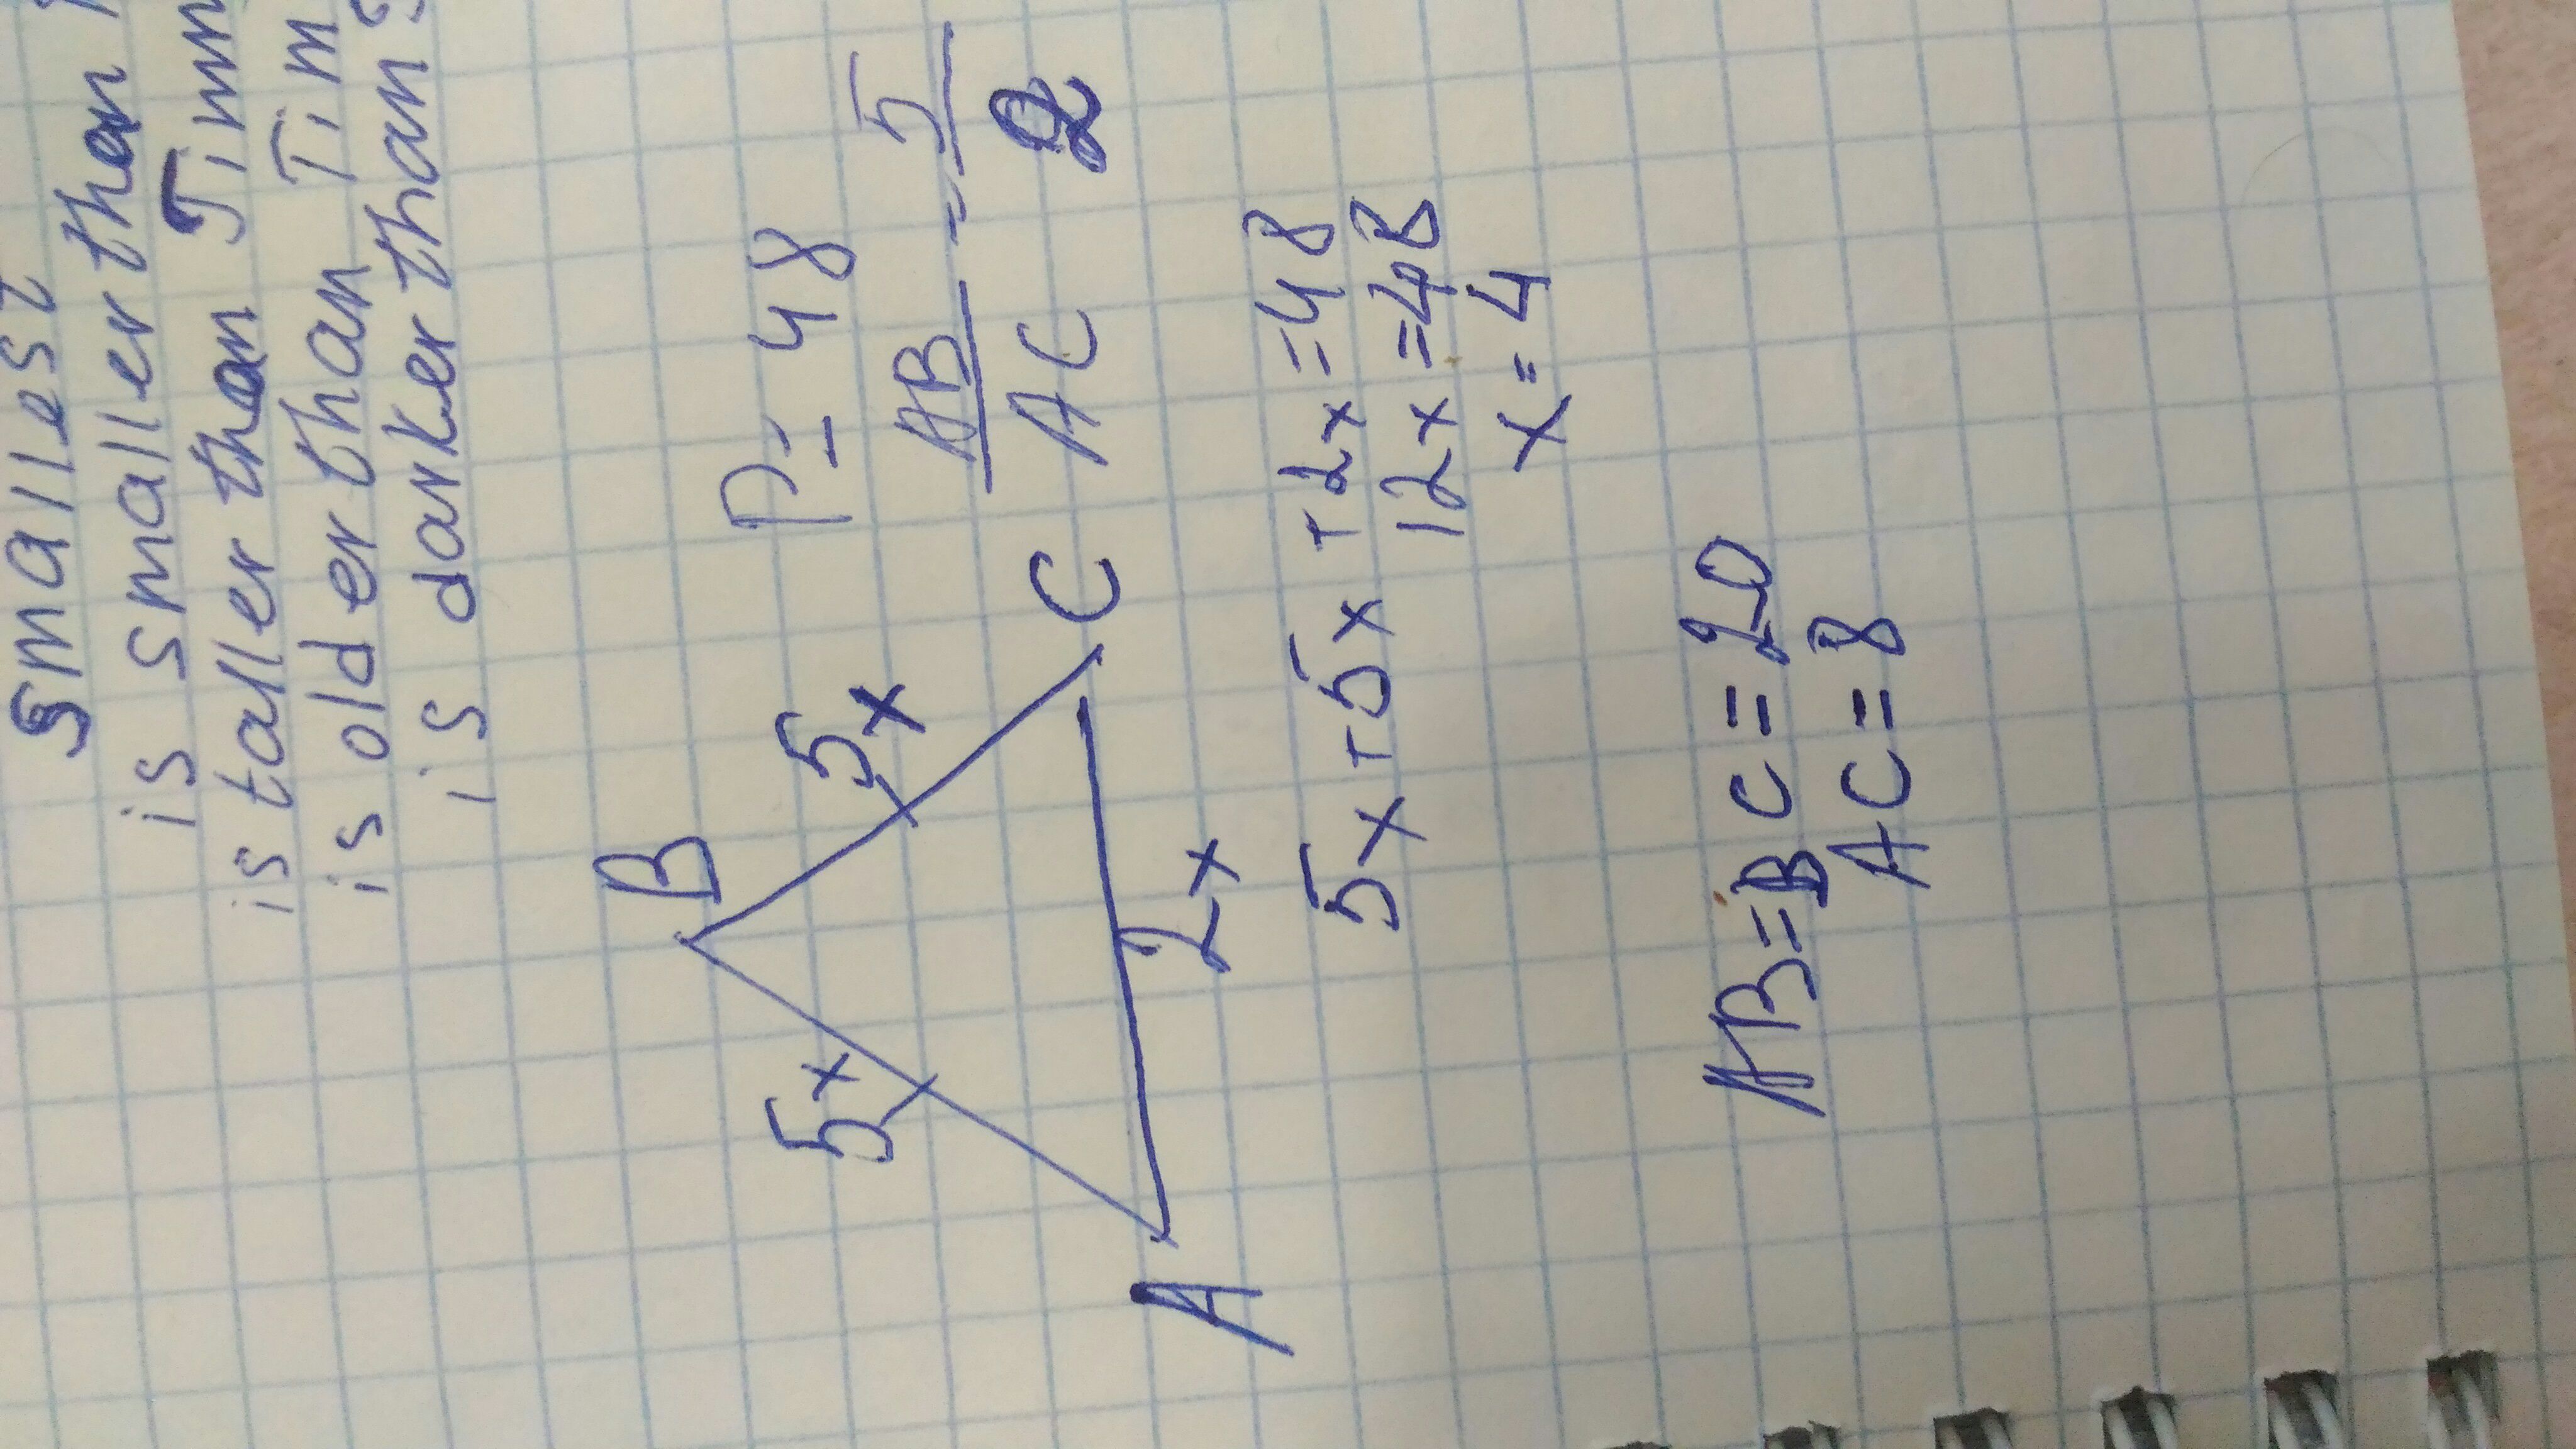 smallest
is smaller than
is taller than
is older than Tim
is darker than
B
5x
5x
A
C
2x
P = 48
AB/AC = 5/2
5x+5x+2x=48
12x=48
x=4
AB=BC=20
AC=8